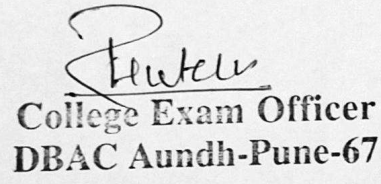 College Exam Officer
DBAC Aundh-Pune-67